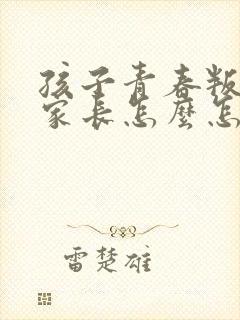 孩子青春叛
家长怎麽怎
雷楚雄